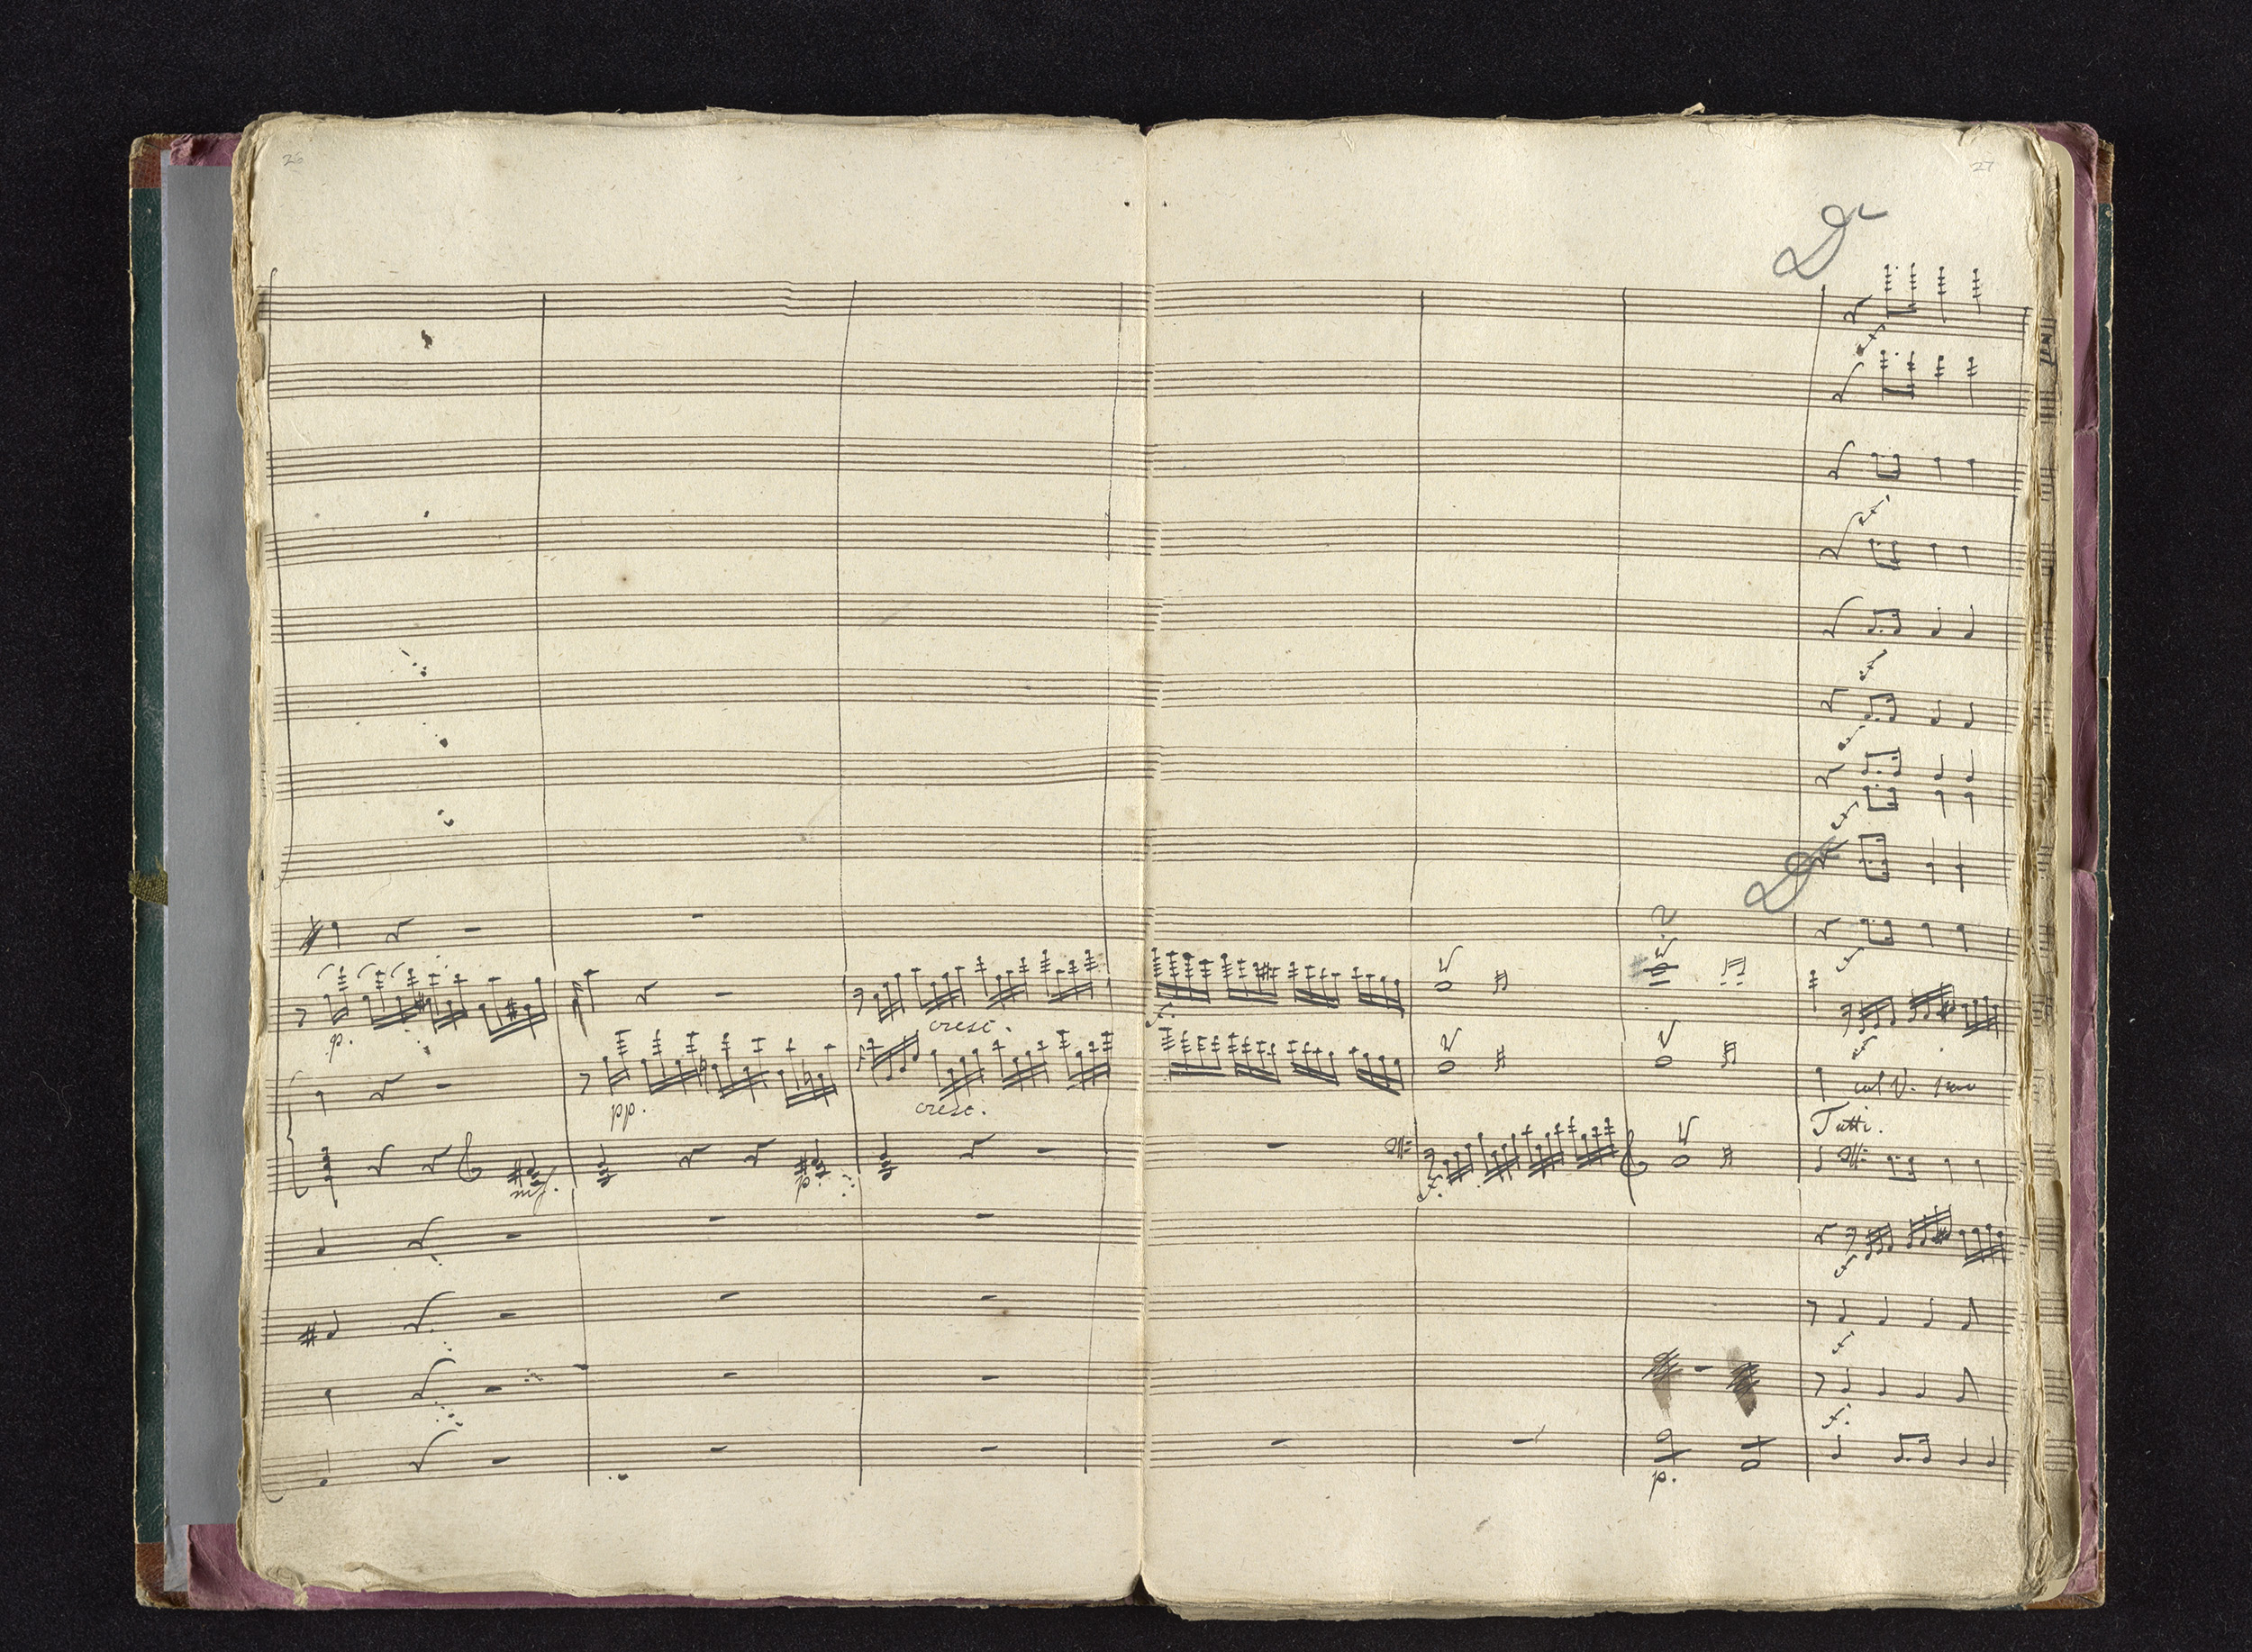 26
27
D
f
f
f
f
D
p.
cresc.
f
pp.
cresc.
col V. pmo
Tutti.
mf.
p.
f.
f
f
f.
p.